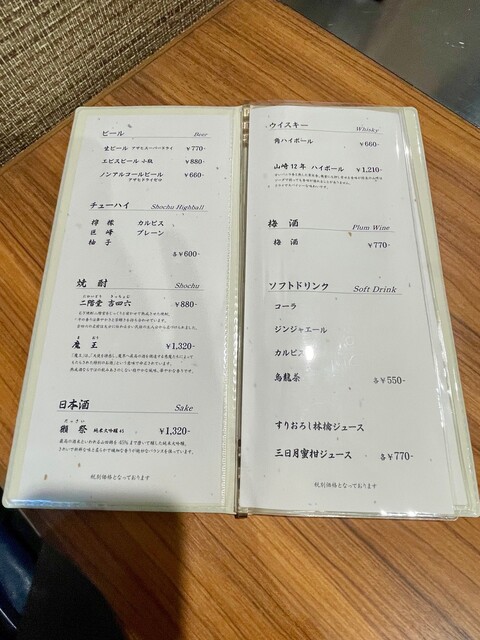 ビール Beer
生ビール アサヒスーパードライ ¥770-
ヱビスビール 小瓶 ¥880-
ノンアルコールビール ¥660-
アサヒドライゼロ
チューハイ Shochu Highball
檸檬 カルピス
巨峰 プレーン
柚子
各¥600-
焼酎 Shochu
にかいどう きっちょむ
二階堂 吉四六 ¥880-
まおう
魔王 ¥1,320-
日本酒 Sake
だっさい
獺祭 純米大吟醸45 ¥1,320-
税別価格となっております
ウイスキー Whisky
角ハイボール ¥660-
山崎12年 ハイボール ¥1,210-
梅酒 Plum Wine
梅酒 ¥770-
ソフトドリンク Soft Drink
コーラ
ジンジャエール
カルピス
烏龍茶 各¥550-
すりおろし林檎ジュース
三日月蜜柑ジュース 各¥770-
税別価格となっております